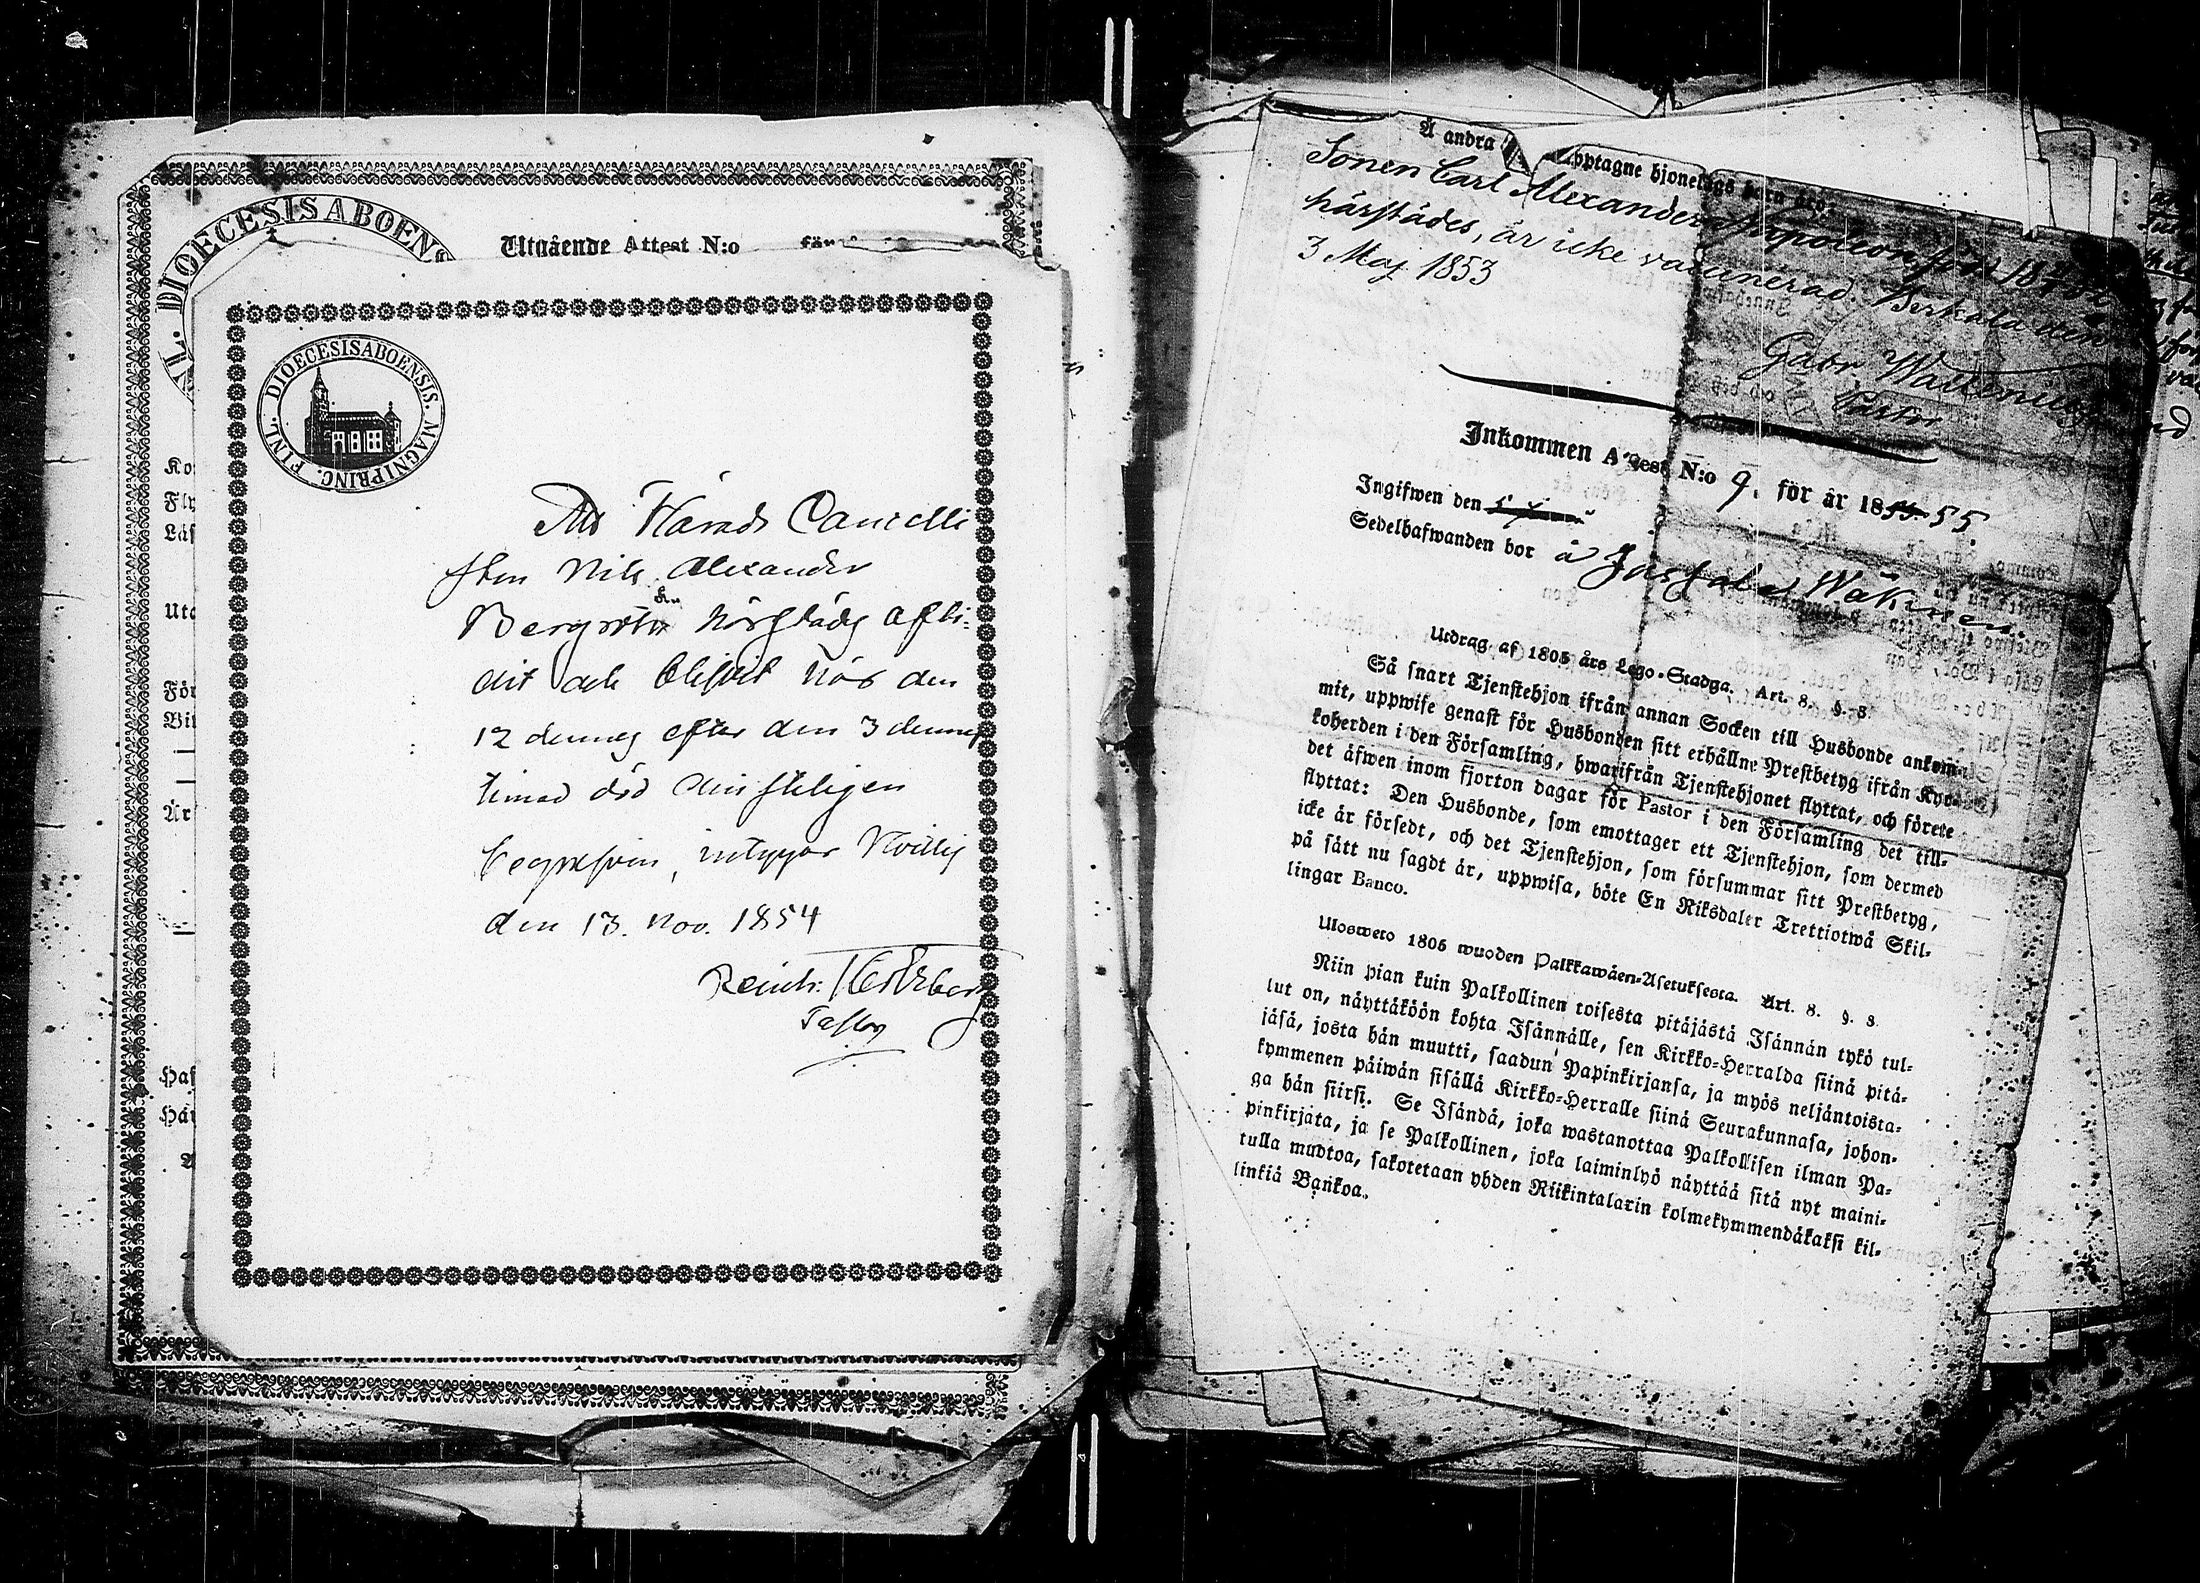 Utgående Attest N:o för
FINL. DIOECESIS ABOENSIS. MAGNI PRINC.
Att Härads Cancelli
sten Nils Alexander
Bergroth härstädes afli-
dit och blifvit här den
12 dennes efter den 3 dennes
timad död christeligen
begrafven, intygar Hvittis
den 13. Nov. 1854
Reinh:
Pastor
Å andra upptagne hjonelags barn äro:
Sonen Carl Alexander Napoleon född 18
härstädes, är icke vaccinerad. Berkala den
3 Maj 1853
Gabr
Pastor
Inkommen Attest N:o 9. för år 1855.
Ingifwen den
Sedelhafwanden bor å
Utdrag af 1805 års Lego-Stadga. Art. 8. §. 8.
Så snart Tjenstehjon ifrån annan Socken till Husbonde ankom-
mit, uppwise genast för Husbonden sitt erhållne Prestbetyg ifrån Kyr-
koherden i den Församling, hwarifrån Tjenstehjonet flyttat, och förete
det äfwen inom fjorton dagar för Pastor i den Församling det till-
flyttat: Den Husbonde, som emottager ett Tjenstehjon, som dermed
icke är försedt, och det Tjenstehjon, som försummar sitt Prestbetyg,
på sätt nu sagdt är, uppwisa, böte En Riksdaler Trettiotwå Skil-
lingar Banco.
Ulosweto 1805 wuoden Palkkawäen-Asetuksesta. Art. 8. §. 8.
Niin pian kuin Palkollinen toisesta pitäjästä Isännän tykö tul-
lut on, näyttäköön kohta Isännälle, sen Kirkko-Herralda siinä pitä-
jäsä, josta hän muutti, saadun Papinkirjansa, ja myös neljäntoista-
kymmenen päiwän sisällä Kirkko-Herralle siinä Seurakunnasa, johon-
ga hän siirsi. Se Isändä, joka wastanottaa Palkollisen ilman Pa-
pinkirjata, ja se Palkollinen, joka laiminlyö näyttää sitä nyt maini-
tulla mudtoa, sakotetaan yhden Riikintalarin kolmekymmendäkaksi kil-
linkiä Bankoa.